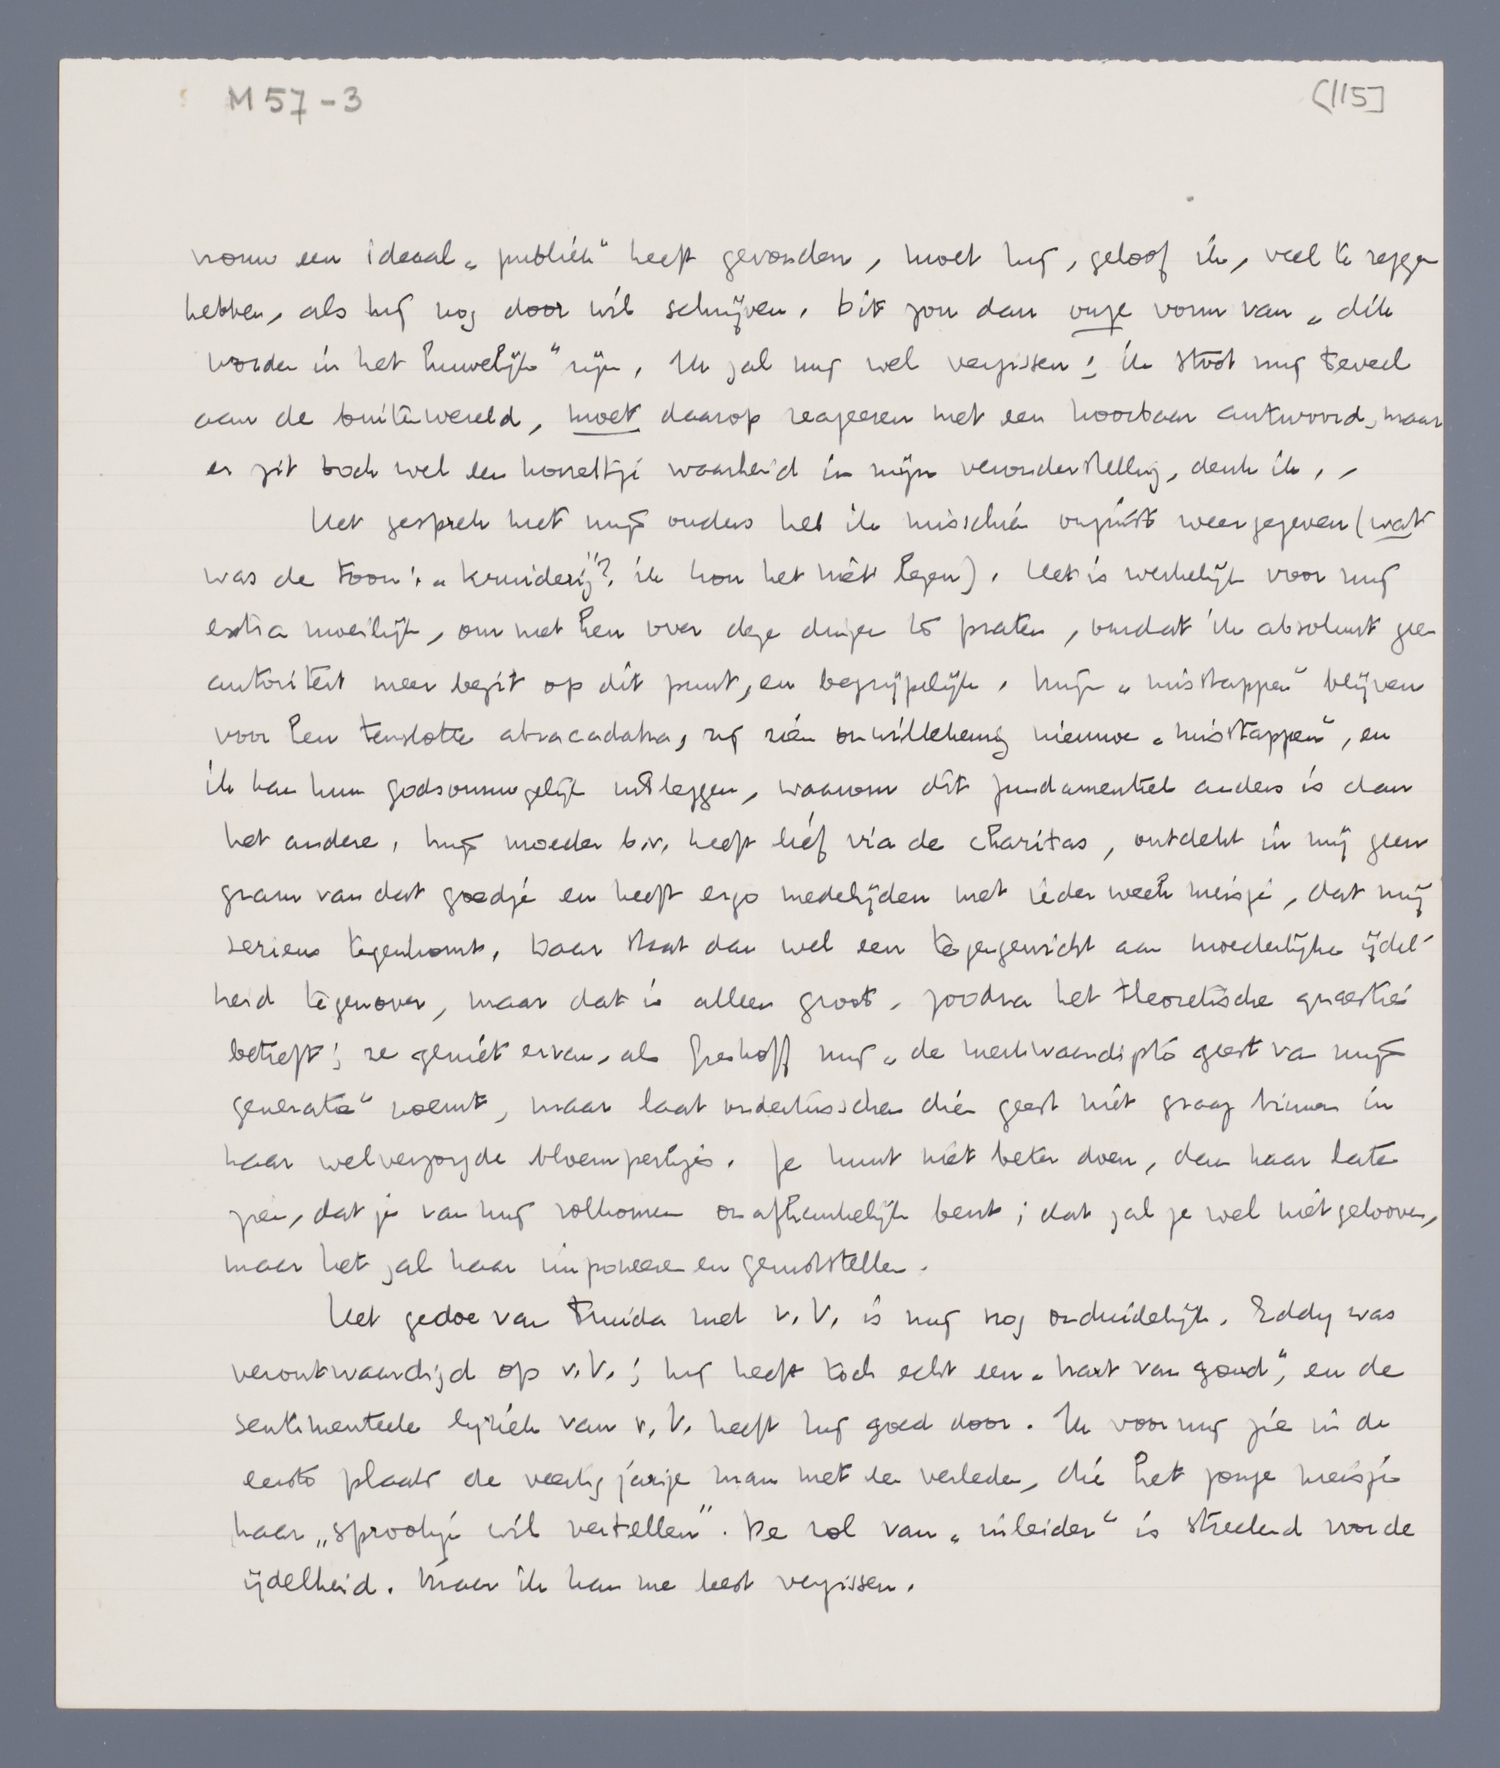 M 57 - 3 (115]
vrouw een ideaal „publiek" heeft gevonden, moet hij, geloof ik, veel te zeggen
hebben, als hij nog door wil schrijven. Dit zou dan onze vorm van „dik
worden in het huwelijk" zijn. Ik zal mij wel vergissen; ik stoot mij teveel
aan de buitenwereld, moet daarop reageeren met een hoorbaar antwoord, maar
er zit toch wel een korreltje waarheid in mijn veronderstelling, denk ik. -
Het gesprek met mijn ouders heb ik misschien onjuist weergegeven (wat
was de toon: „kruiderij"? ik kon het niet lezen). Het is werkelijk voor mij
extra moeilijk, om met hen over deze dingen te praten, omdat ik absoluut geen
autoriteit meer bezit op dit punt, en begrijpelijk. Mijn „misstappen" blijven
voor hen tenslotte abracadabra, zij zien onwillekeurig nieuwe „misstappen", en
ik kan hun godsonmogelijk uitleggen, waarom dit fundamenteel anders is dan
het andere. Mijn moeder b.v. heeft lief via de charitas, ontdekt in mij geen
gram van dat goedje en heeft ergo medelijden met ieder week meisje, dat mij
serieus tegenkomt. Daar staat dan wel een tegengewicht aan moederlijke ijdel-
heid tegenover, maar dat is alleen groot, zoodra het theoretische quaesties
betreft; ze geniet ervan, als Greshoff mij „de merkwaardigste geest van mijn
generatie" noemt, maar laat ondertusschen dien geest niet graag binnen in
haar welverzorgde bloemperkjes. Je kunt niet beter doen, dan haar laten
zien, dat je van mij volkomen onafhankelijk bent; dat zal je wel niet gelooven,
maar het zal haar imponeeren en geruststellen.
Het gedoe van Truida met v. V. is mij nog onduidelijk. Eddy was
verontwaardigd op v.V.; hij heeft toch echt een „hart van goud", en de
sentimenteele lyriek van v. V. heeft hij goed door. Ik voor mij zie in de
eerste plaats de veertigjarige man met een verleden, die het jonge meisje
haar „sprookje wil vertellen". De rol van „inleider" is streelend voor de
ijdelheid. Maar ik kan me best vergissen.